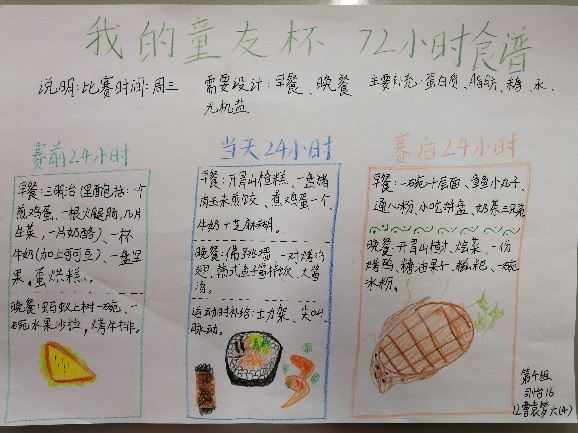 我的童友杯 72小时食谱
说明:比赛时间:周三 需要设计:早餐、晚餐 主要补充:蛋白质、脂肪、糖、水、
无机盐
赛前24小时
早餐:三明治(里面包括:一个
煎鸡蛋、一根火腿肠,几片
生菜、一片奶酪)、一杯
牛奶(加上可可豆)、一盘坚
果。蛋烘糕。
晚餐:蚂蚁上树一碗、一
碗水果沙拉,烤牛排。
当天24小时
早餐:开胃山楂糕、一盘猪
肉玉米煎饺、煮鸡蛋一个、
牛奶+芝麻糊。
翅、韩式鱼子酱拌饭、大酱
汤。
运动时补给:士力架、尖叫、
脉动。
赛后24小时
早餐:一碗千层面、章鱼小丸子、
通心粉、小吃拼盘、奶茶三兄弟
晚餐:开胃山楂汁、烩菜、一份
烤鸭、糖油果子、糍粑、一碗
冰粉。
第午组